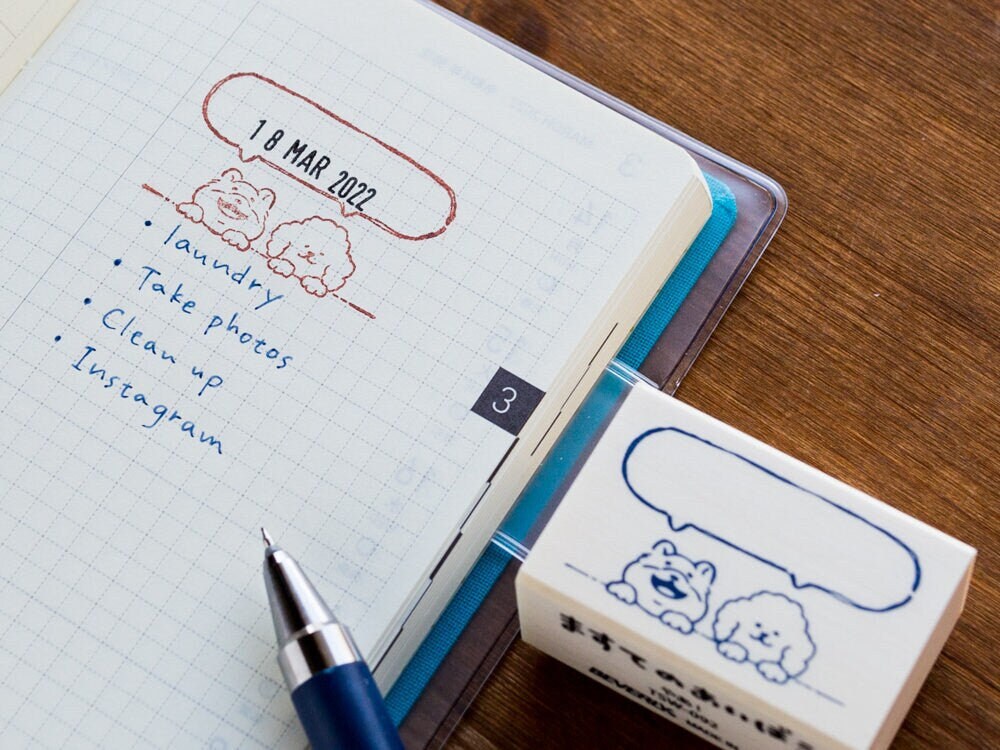 18 MAR 2022
• laundry
• Take photos
• Clean up
• Instagram
3
ますてのあいぼう
TSW-092
BEVERLY